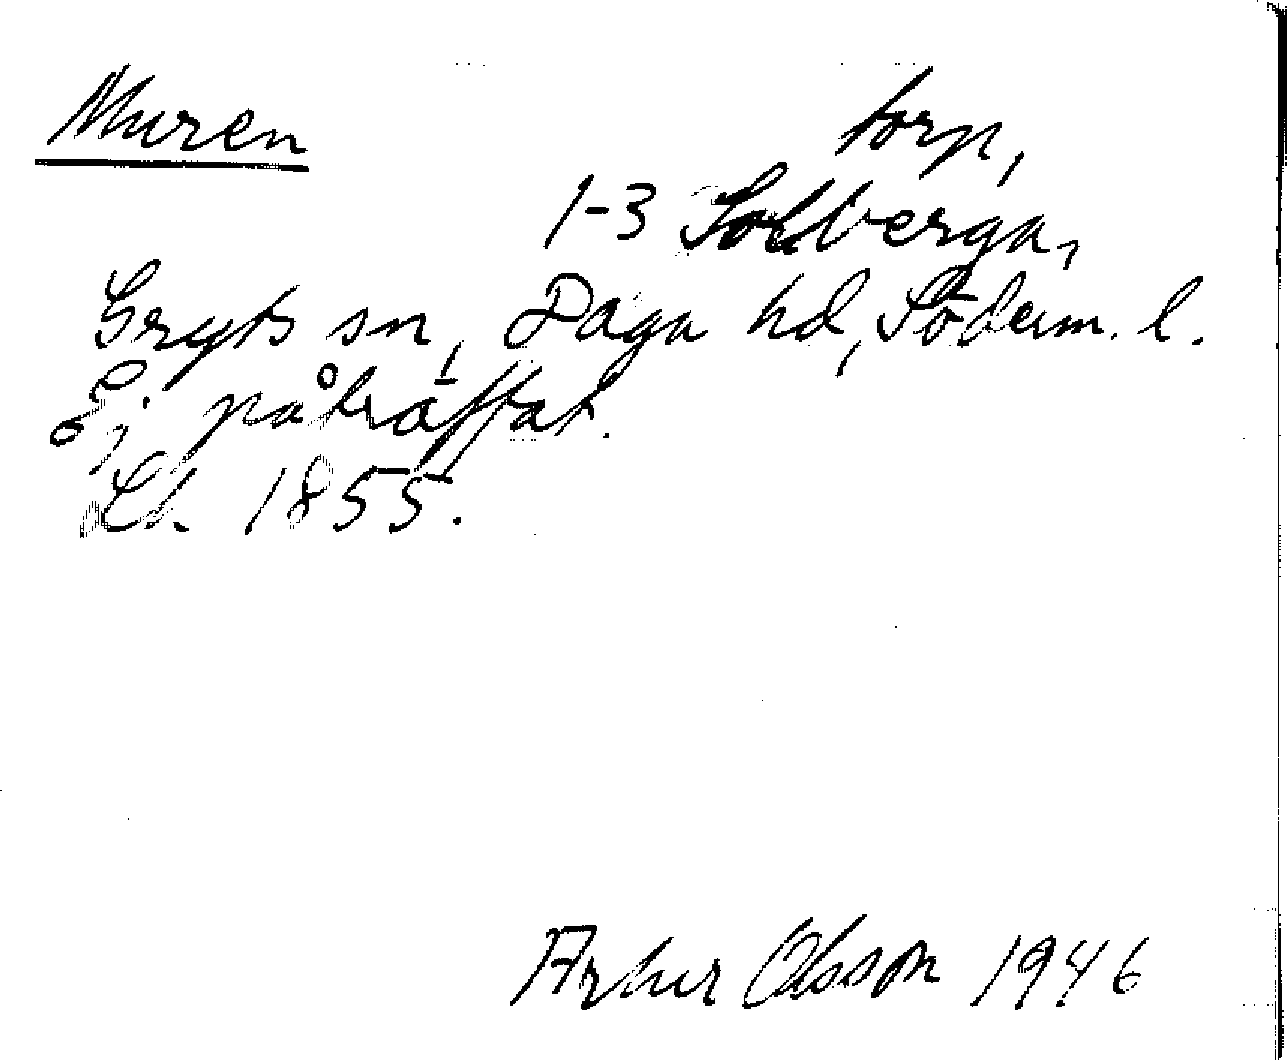 Muren
torp,
1-3 Solberga,
Gryts sn, Daga hd, Söderm. l.
Ej påträffat.
Lb. 1855.
Arthur Olsson 1946